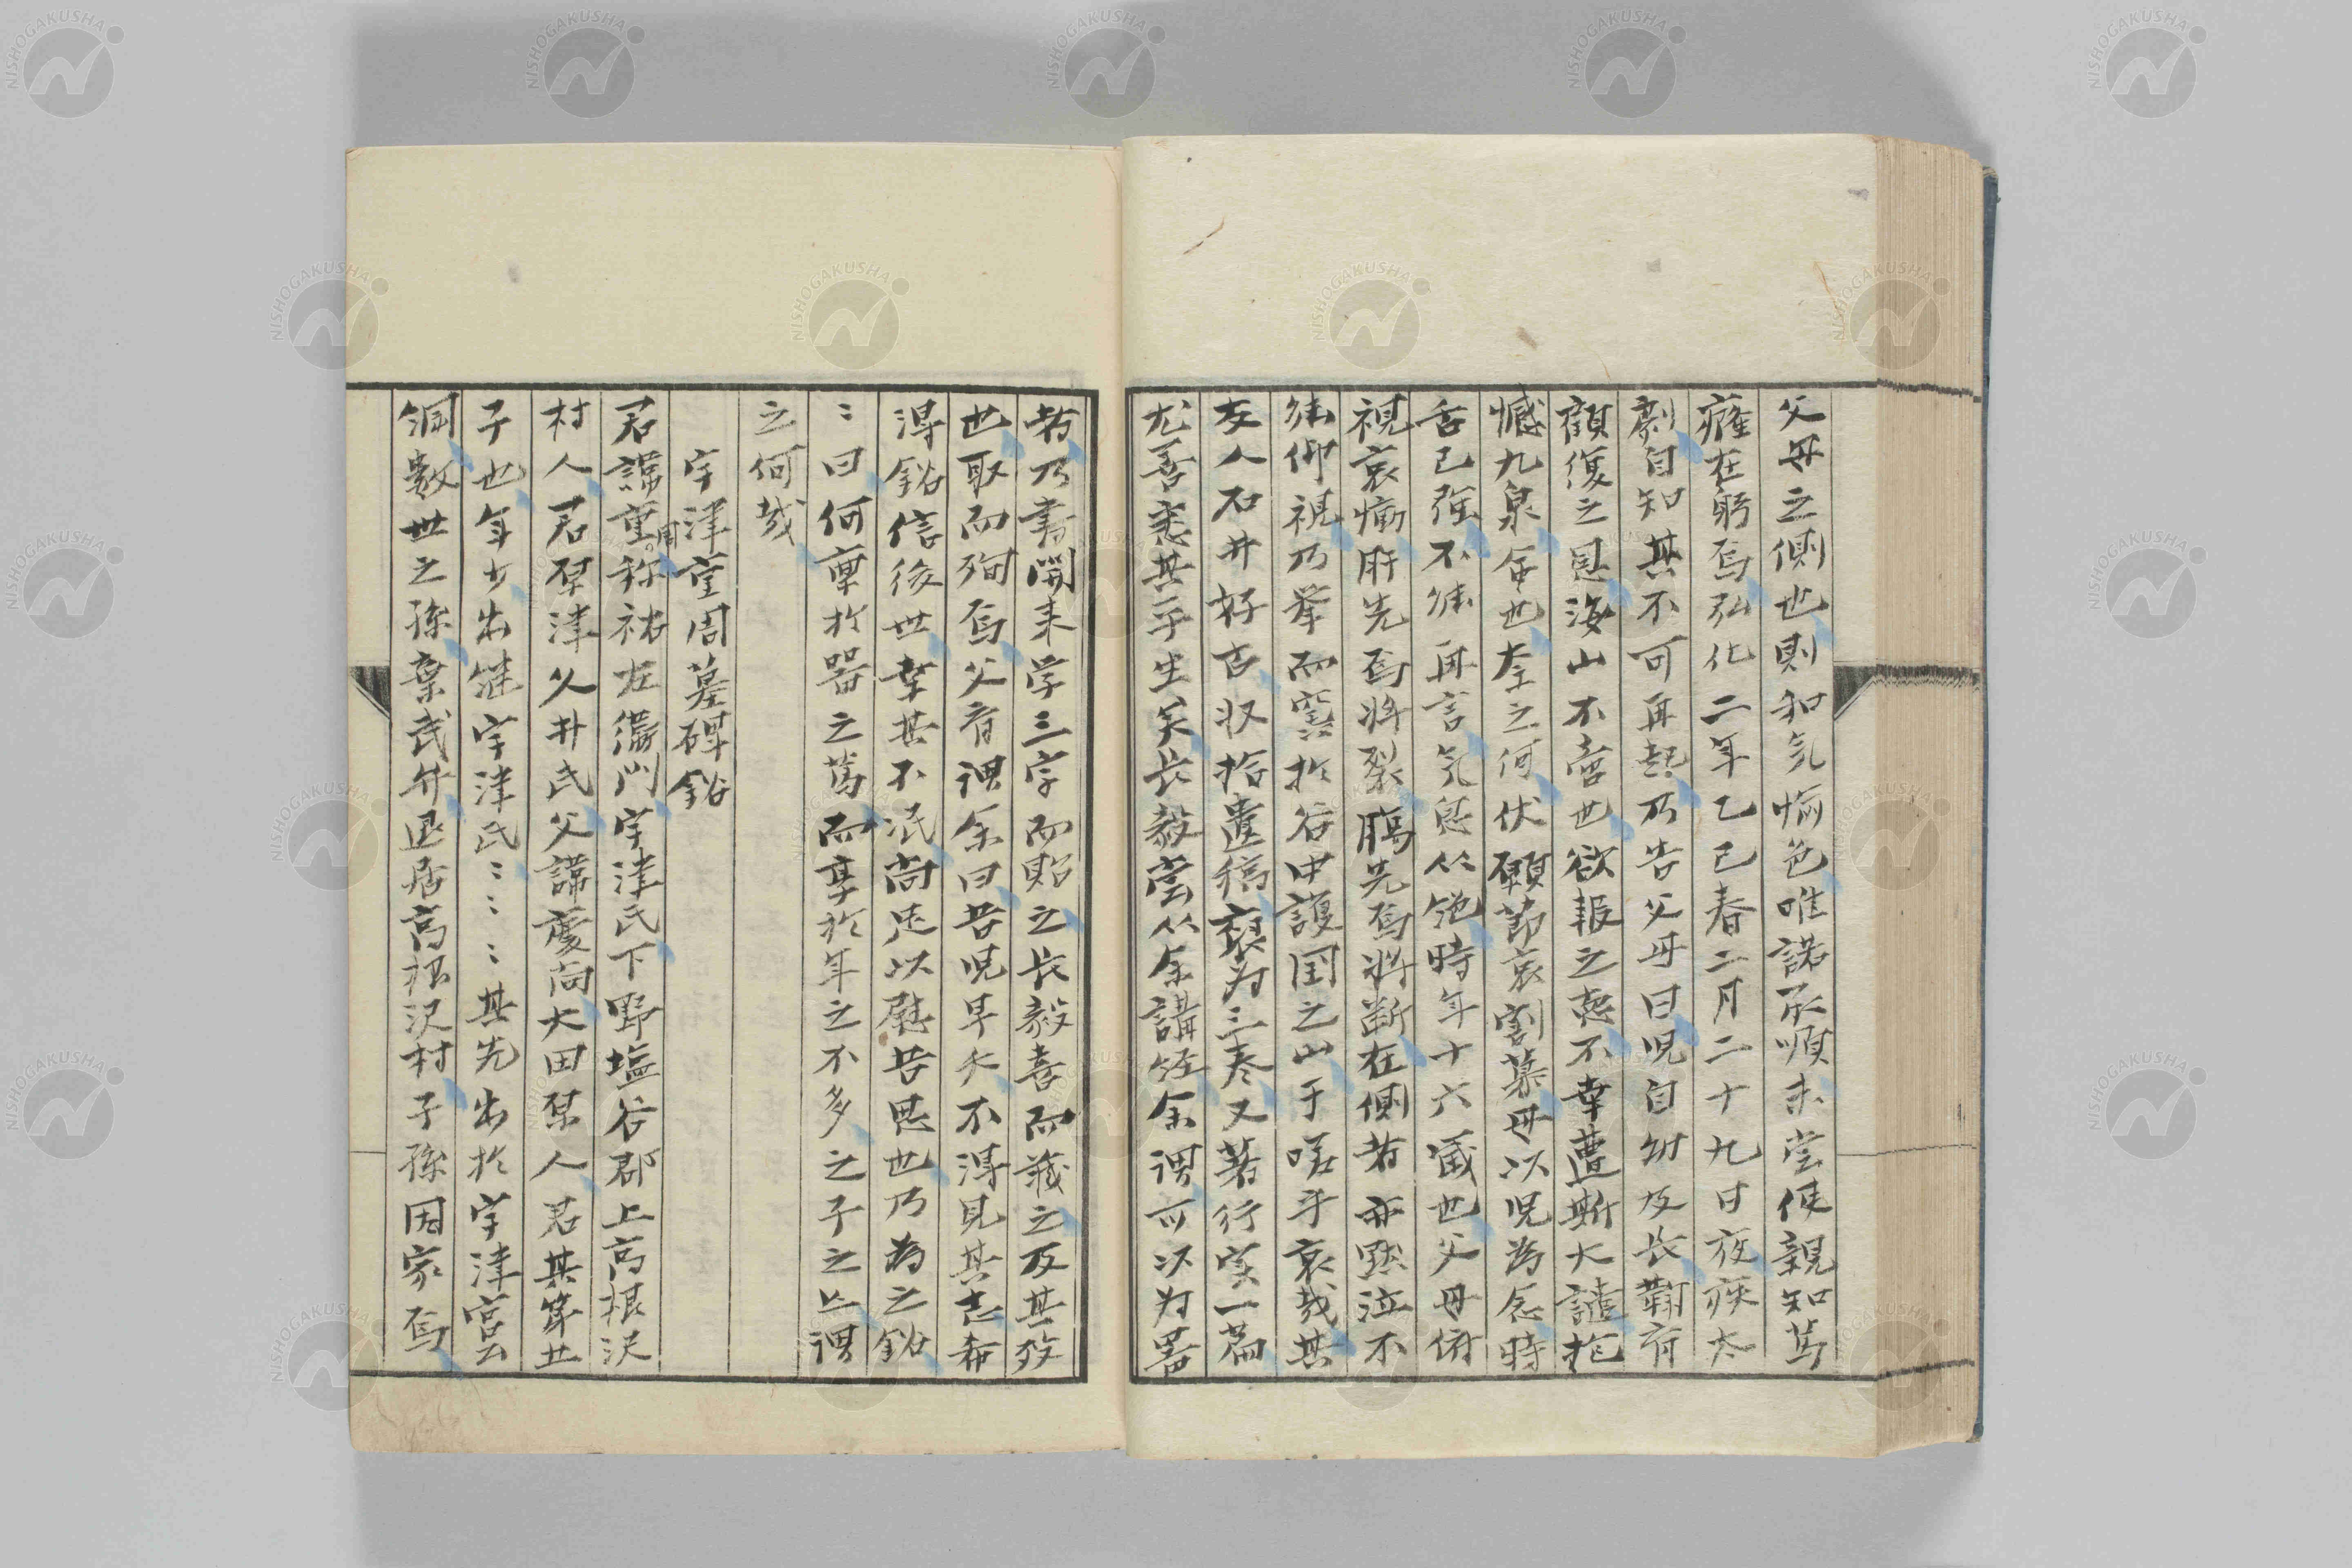 父母之側也則和気愉色唯諾承順未嘗使親知篤
癃在躬焉弘化二年乙巳春二月二十九日夜疾太
劇自知其不可再起乃告父母曰児自幼及長鞠育
顧復之恩海山不啻也欲報之志不幸遭斯大譴抱
憾九泉命也奈之何伏願節哀割慕毋以児為念時
舌已強不能再言気息人絶時年十六歳也父母俯
視哀慟肝先焉将裂腸先焉将断在側者亦黙泣不
能仰視乃挙而窆於谷中護国之山于嗟乎哀哉其
友人石井好古収拾遺稿裒為三巻又著行実一篇
尤善悉其平生矣長毅嘗从余講経余謂可以为器
者乃書開来学三字而貽之長毅喜而蔵之及其歿
也取而殉焉父育謂余曰吾児早夭不得見其志希
得銘信後世幸其不泯尚足以慰吾思也乃為之銘
〻曰何稟於器之篤而享於年之不多之子之亡謂
之何哉
宇津重周墓碑銘
君諱重周称祐左衛門宇津氏下野塩谷郡上高根沢
村人君本津久井氏父諱慶尚大田原人君其第廿
子也年少出継宇津氏〻〻〻其先出於宇津宮公
綱数世之孫棄武弁退居高根沢村子孫因家焉
NISHOGAKUSHA